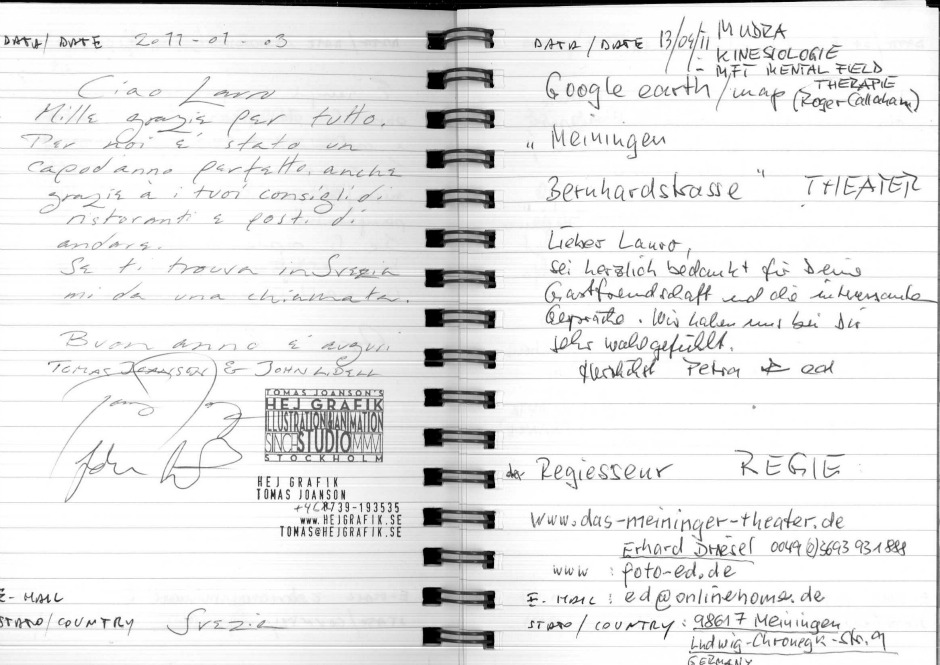 DATA/DATE 2011-01-03
Ciao Lauro
Mille grazie per tutto.
Per noi é stato un
capodanno perfetto. anche
grazie à i tuoi consigli di
ristoranti e posti di
andare.
Se ti trova in Svezia
mi da una chiamata.
Buon anno é auguri
TOMAS JOANSON & JOHN LIDELL
TOMAS JOANSON'S
HEJ GRAFIK
ILLUSTRATION & ANIMATION
SINCE STUDIO MMVI
STOCKHOLM
HEJ GRAFIK
TOMAS JOANSON
WWW.HEJGRAFIK.SE
TOMAS@HEJGRAFIK.SE
E-MAIL
STATO/COUNTRY Svezia
DATA/DATE 13/04/11 MUDRA
- KINESIOLOGIE
- MFT MENTAL FIELD
THERAPIE
Google earth/map (Roger Callaham)
"Meiningen
Bernhardstrasse" THEATER
Lieber Lauro,
sei herzlich bedankt für Deine
Gastfreundschaft und die interessanten
Gespräche. Wir haben uns bei Dir
sehr wohlgefühlt.
Herzlichst Petra + ed
der Regiesseur REGIE
www.das-meininger-theater.de
Erhard Driesel 0049(0)3693 931888
www : foto-ed.de
E-MAIL : ed@onlinehome.de
STATO/COUNTRY : 98617 Meiningen
Ludwig-Chronegk-Str. 9
GERMANY